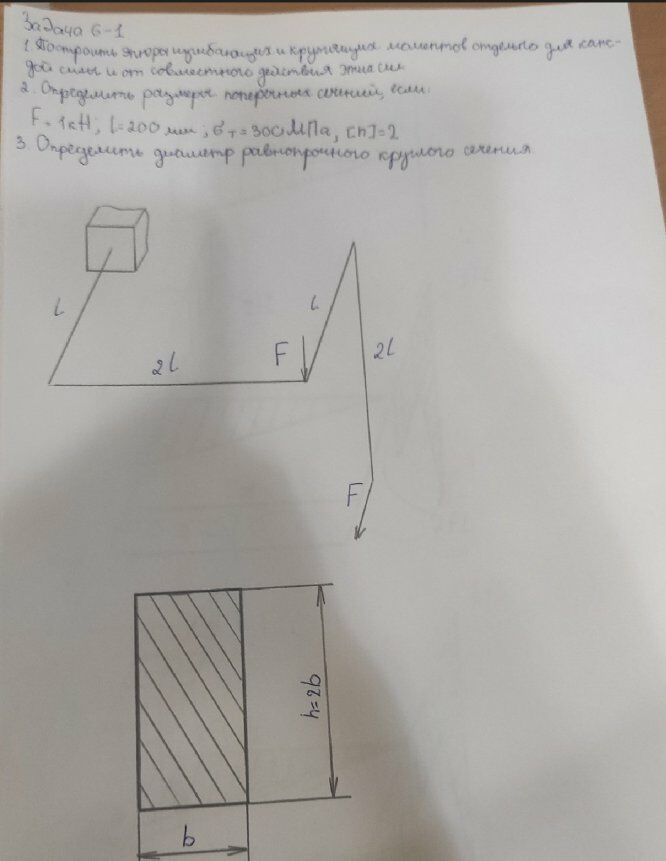 Задача 6-1
1. Построить эпюры изгибающих и крутящих моментов отдельно для каж-
дой силы и от совместного действия этих сил
2. Определить размеры поперечных сечений, если:
F = 1кН; l=200 мм; σт=300МПа, [n]=2
3. Определить диаметр равнопрочного круглого сечения
l
2l
F
l
2l
F
h=2b
b